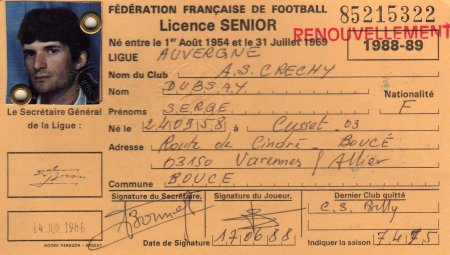 FÉDÉRATION FRANÇAISE DE FOOTBALL
85215322
Licence SENIOR
RENOUVELLEMENT
Né entre le 1er Août 1954 et le 31 Juillet 1969
1988-89
LIGUE AUVERGNE
Nom du Club A.S. CRECHY
Nom DUBSAY
Nationalité
F
Prénoms SERGE
Le Secrétaire Général
de la Ligue :
Né le 240958 à Cusset 03
Adresse Route de Cindré BOUCÉ
03150 Varennes / Allier
Commune BOUCE
Signature du Secrétaire,
Signature du Joueur,
Dernier Club quitté
C.S. Billy
14 JUIL 1988
MOORE PARAGON
Date de Signature 170688
Indiquer la saison 7475